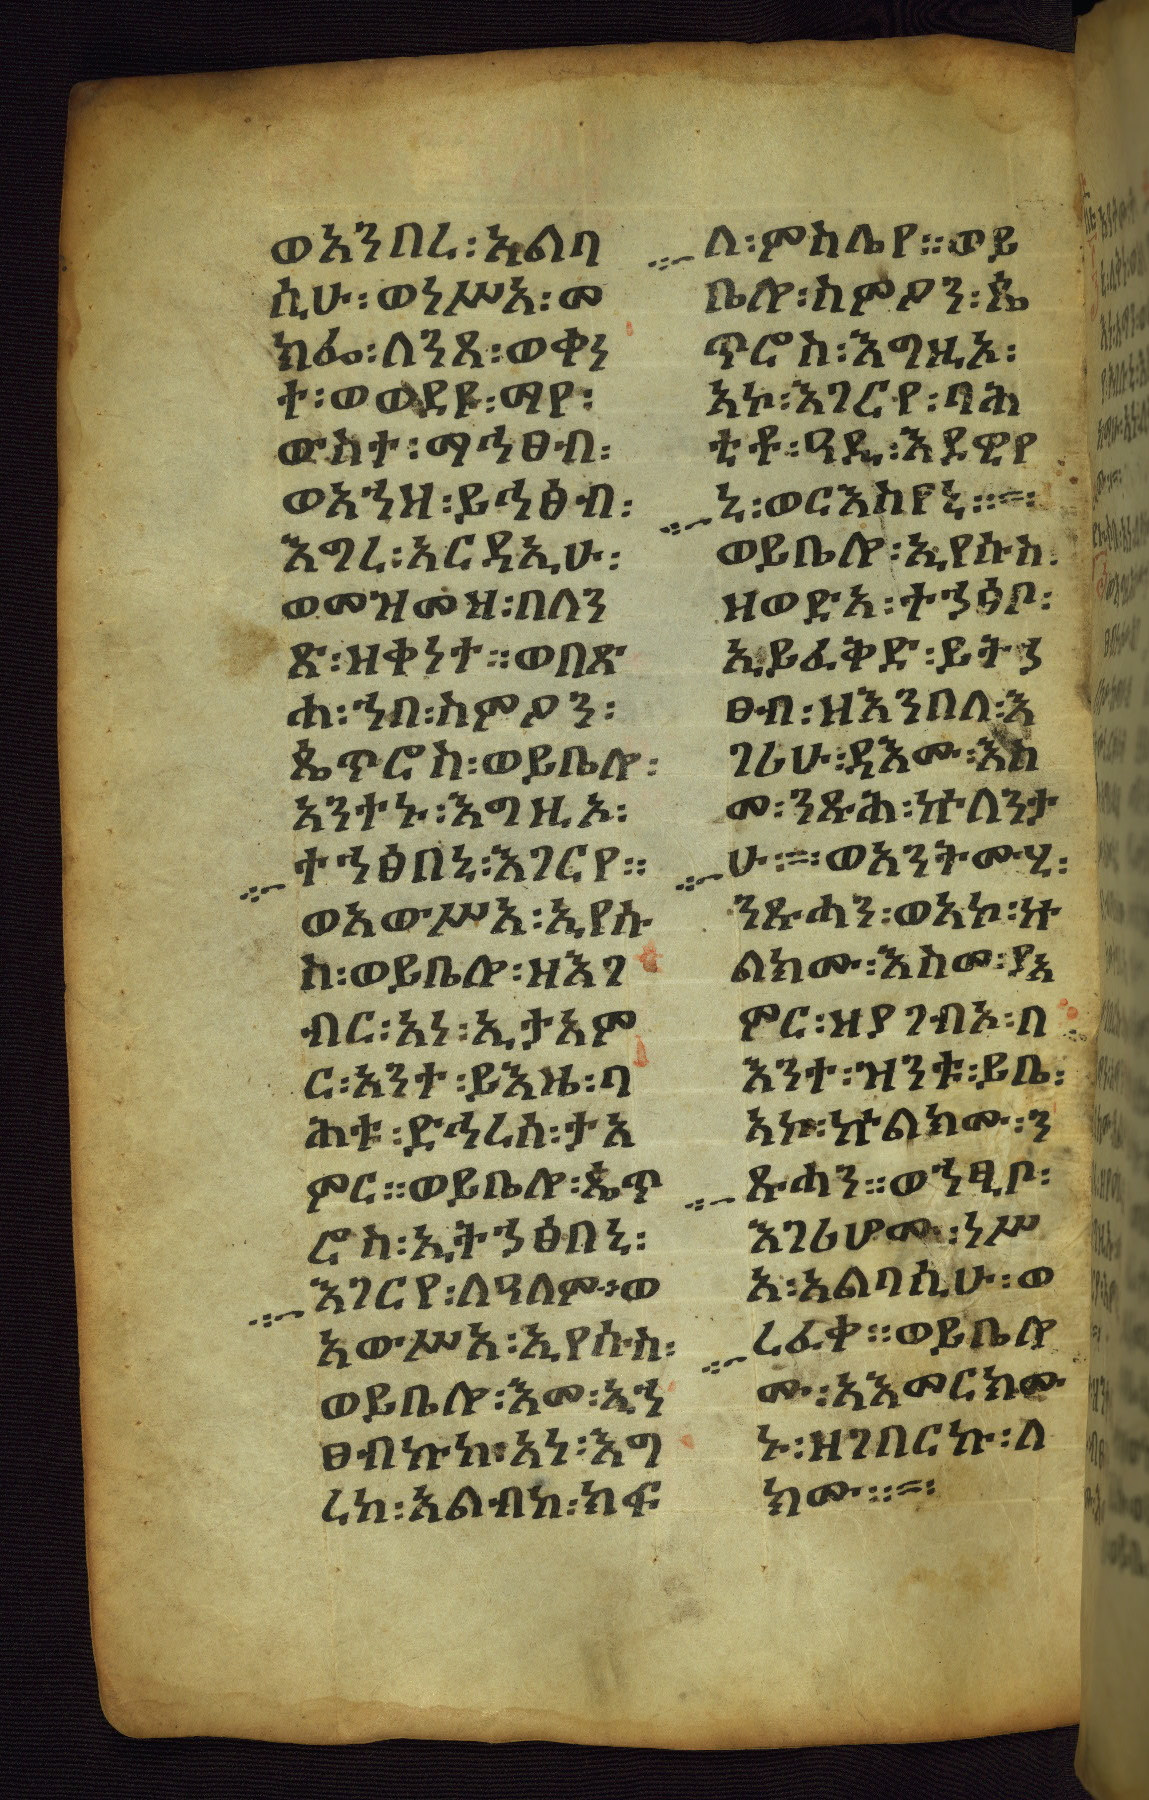 ወአንበረ፡አልባ
ሲሁ፡ወነሥአ፡መ
ክፈ፡ለንጸ፡ወቀነ
ተ፡ወወደየ፡ማየ፡
ውስተ፡ማኅፀብ፡
ወአኀዘ፡ይኅፅብ፡
እግረ፡አርዳኢሁ፡
ወመዝመዘ፡በለን
ጽ፡ዘቀነተ፡፡ወበጽ
ሐ፡ኀበ፡ስምዖን፡
ጴጥሮስ፡ወይቤሎ፡
አንተኑ፡እግዚኦ፡
ተኀፅበኒ፡እገርየ፡፡
ወአውሥአ፡ኢየሱ
ስ፡ወይቤሎ፡ዘእገ
ብር፡አነ፡ኢታአም
ር፡አንተ፡ይእዜ፡ባ
ሕቱ፡ድኅረሰ፡ታአ
ምር፡፡ወይቤሎ፡ጴጥ
ሮስ፡ኢትኀፅበኒ፡
እገርየ፡ለዓለም፡ወ
አውሥአ፡ኢየሱስ፡
ወይቤሎ፡እመ፡ኢኀ
ፀብኩከ፡አነ፡እግ
ረከ፡አልብከ፡ክፍ
ለ፡ምስሌየ፡፡ወይ
ቤሎ፡ስምዖን፡ጴ
ጥሮስ፡እግዚኦ፡
አኮ፡እገርየ፡ባሕ
ቲቶ፡ዓዲ፡እደዊየ
ኒ፡ወርእስየኒ፡፡
ወይቤሎ፡ኢየሱስ፡
ዘወድአ፡ተኀፅቦ፡
ኢይፈቅድ፡ይትኀ
ፀብ፡ዘእንበለ፡እ
ገሪሁ፡ዳእሙ፡እስ
መ፡ንጹሕ፡ኵለንታ
ሁ፡፡ወአንትሙሂ፡
ንጹሓን፡ወአኮ፡ኵ
ልክሙ፡እስመ፡ያአ
ምር፡ዘያገብኦ፡በ
እንተ፡ዝንቱ፡ይቤ፡
አኮ፡ኵልክሙ፡ን
ጹሓን፡፡ወኀፂቦ፡
እገሪሆሙ፡ነሥ
አ፡አልባሲሁ፡ወ
ረፈቀ፡፡ወይቤሎ
ሙ፡አእመርክሙ
ኑ፡ዘገበርኩ፡ለ
ክሙ፡፡